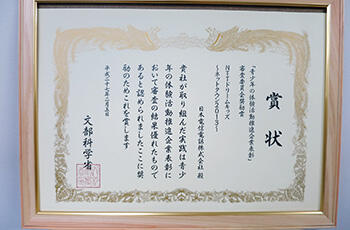 賞状
「青少年の体験活動推進企業表彰」
審査委員会奨励賞
NTTドリームキッズ
～ネットタウン2013～
日本電信電話株式会社 殿
貴社が取り組んだ実践は青少
年の体験活動推進企業表彰に
おいて審査の結果優れたもので
あると認められましたここに奨
励のためこれを賞します
平成二十七年二月五日
文部科学省